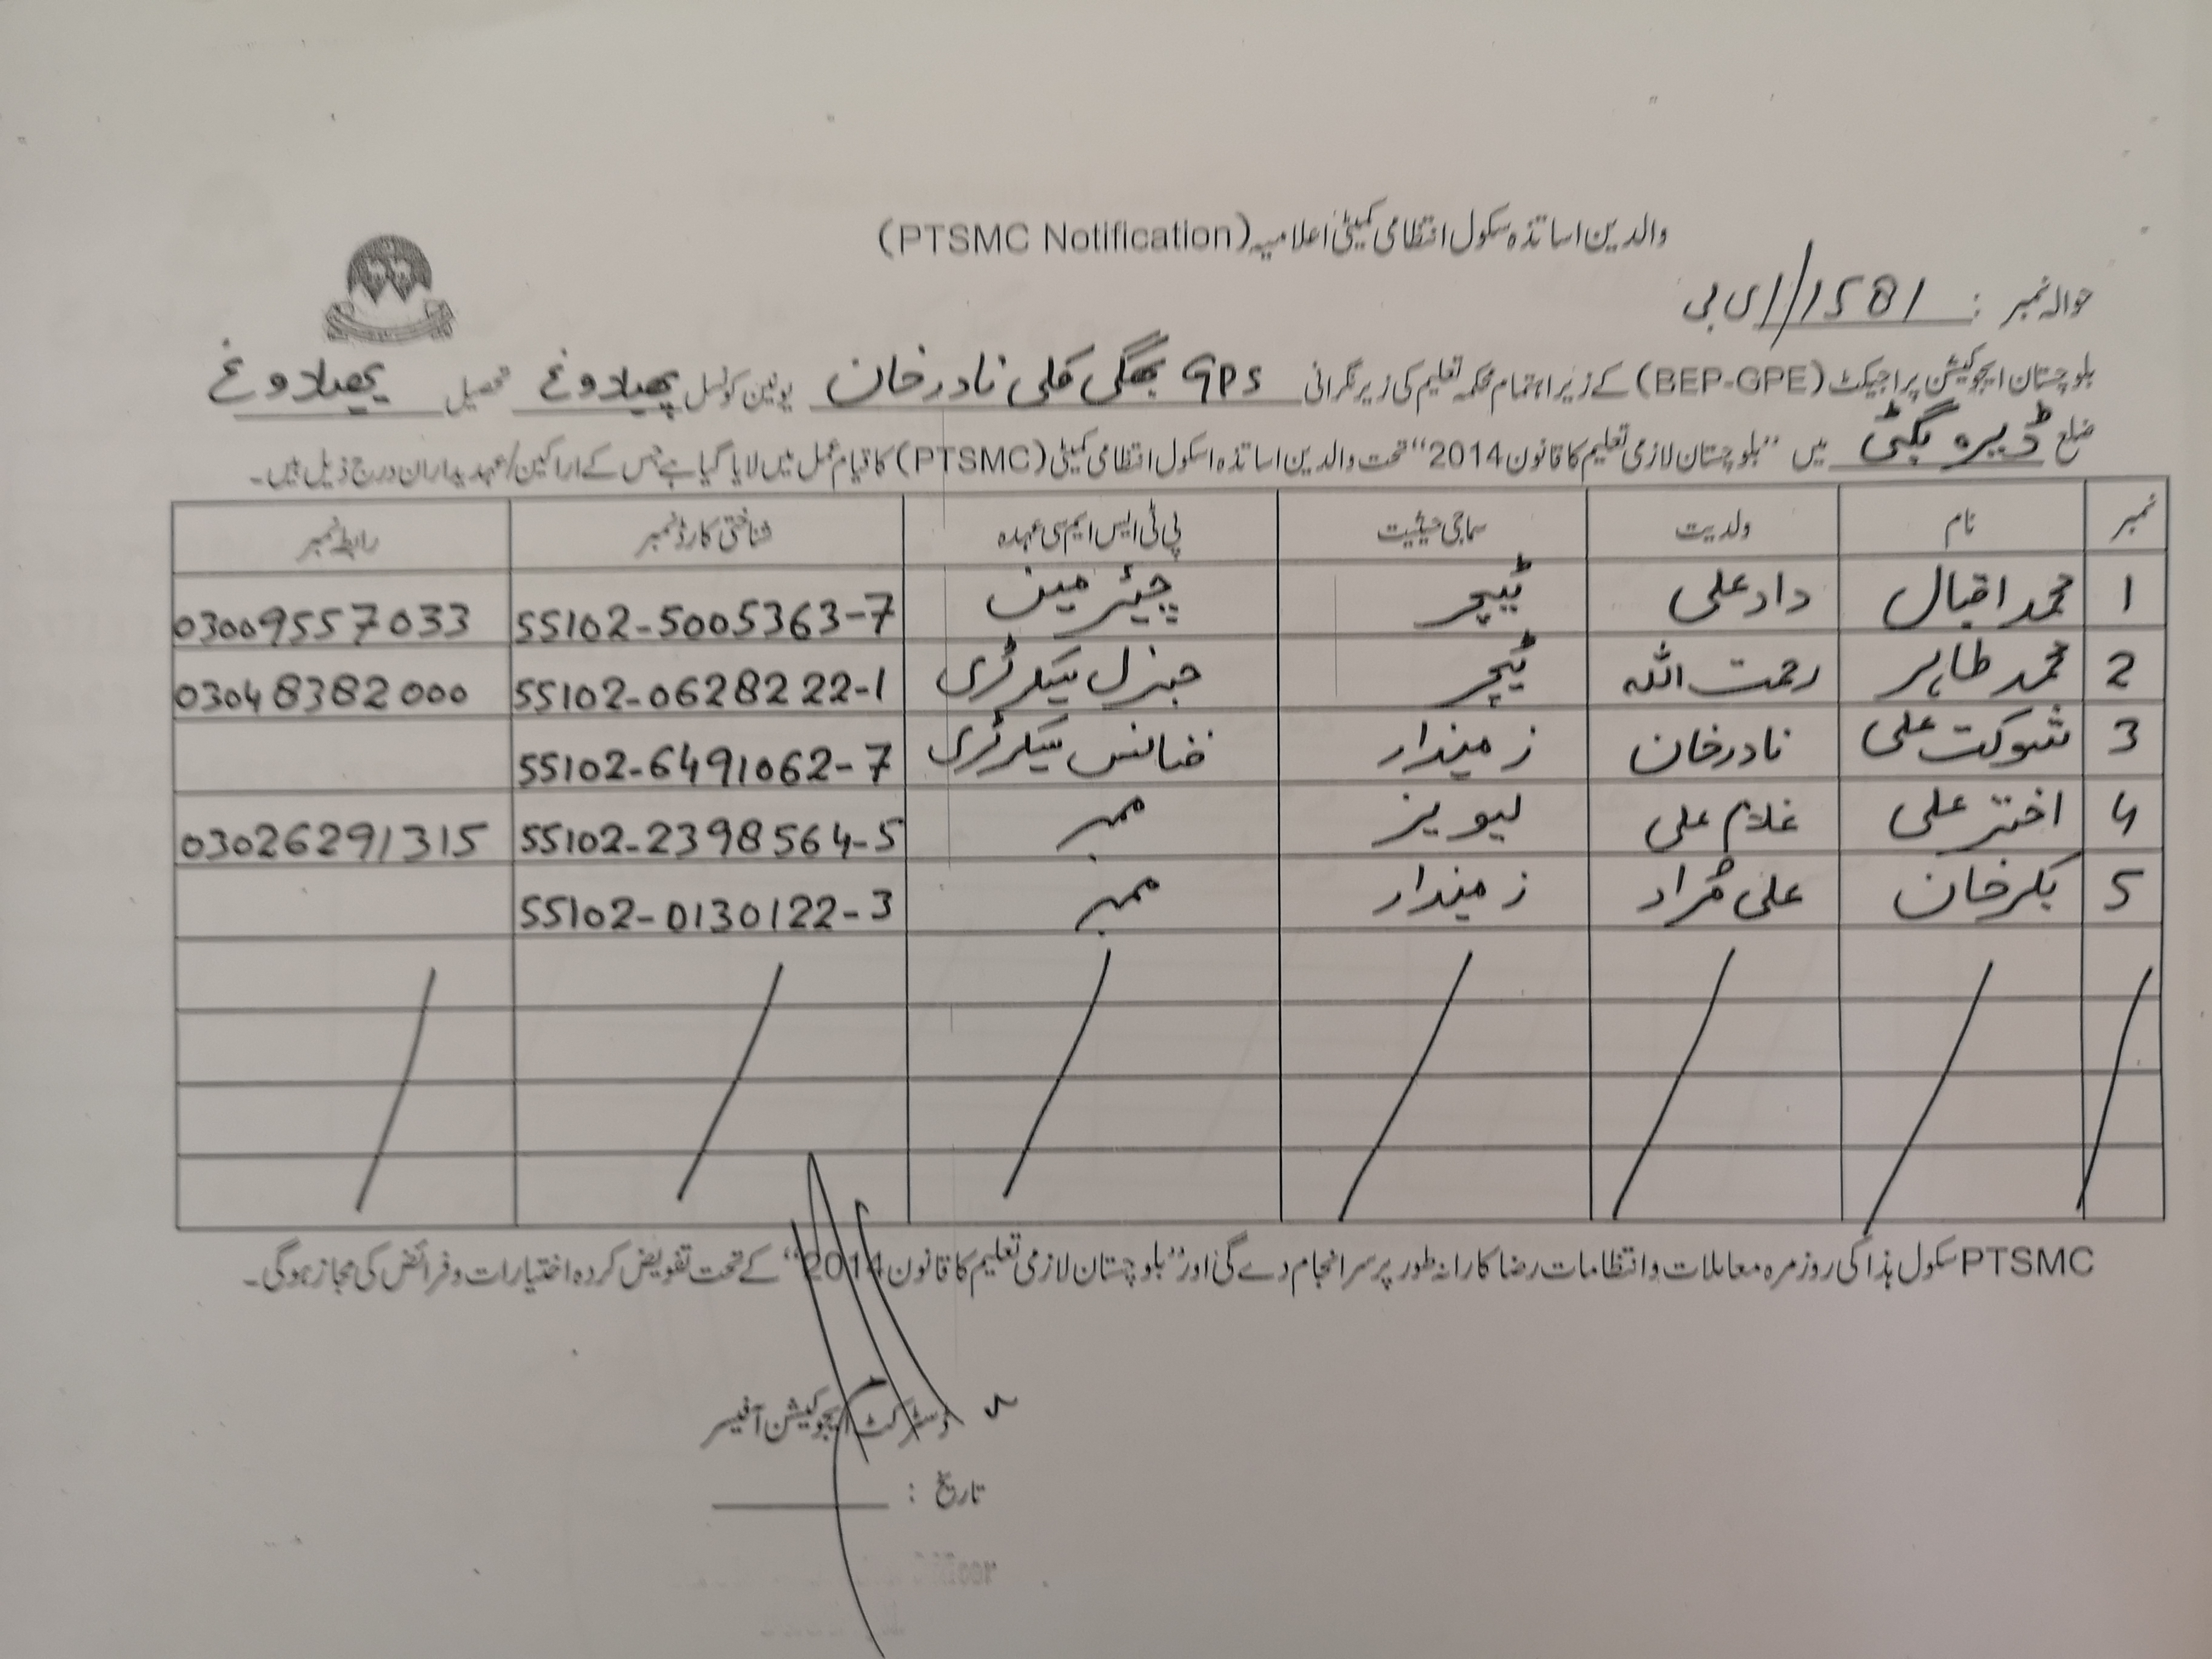 والدین اساتذہ سکول انتظامی کمیٹی اعلامیہ (PTSMC Notification)
حوالہ نمبر : 1581//ای بی
بلوچستان ایجوکیشن پراجیکٹ (BEP-GPE) کے زیر اہتمام محکمہ تعلیم کی زیر نگرانی GPS بھگی کلی نادرخان یونین کونسل پھیلاوغ تحصیل پھیلاوغ
ضلع ڈیرہ بگٹی میں "بلوچستان لازمی تعلیم کا قانون 2014" تحت والدین اساتذہ اسکول انتظامی کمیٹی (PTSMC) کا قیام عمل میں لایا گیا ہے جس کے اراکین/عہدیداران درج ذیل ہیں۔
نمبر نام ولدیت سماجی حیثیت پی ٹی ایس ایم سی عہدہ شناختی کارڈ نمبر رابطہ نمبر
1 محمد اقبال داد علی ٹیچر چیئرمین 55102-5005363-7 03009557033
2 محمد طاہر رحمت اللہ ٹیچر جنرل سیکرٹری 55102-0628222-1 03048382000
3 شوکت علی نادرخان زمیندار فنانس سیکرٹری 55102-6491062-7
4 اختر علی غلام علی لیویز ممبر 55102-2398564-5 03026291315
5 بکرخان علی مُراد زمیندار ممبر 55102-0130122-3
PTSMC سکول ہذا کی روزمرہ معاملات و انتظامات رضا کارانہ طور پر سرانجام دے گی اور "بلوچستان لازمی تعلیم کا قانون 2014" کے تحت تفویض کردہ اختیارات و فرائض کی مجاز ہوگی۔
ڈسٹرکٹ ایجوکیشن آفیسر
تاریخ :